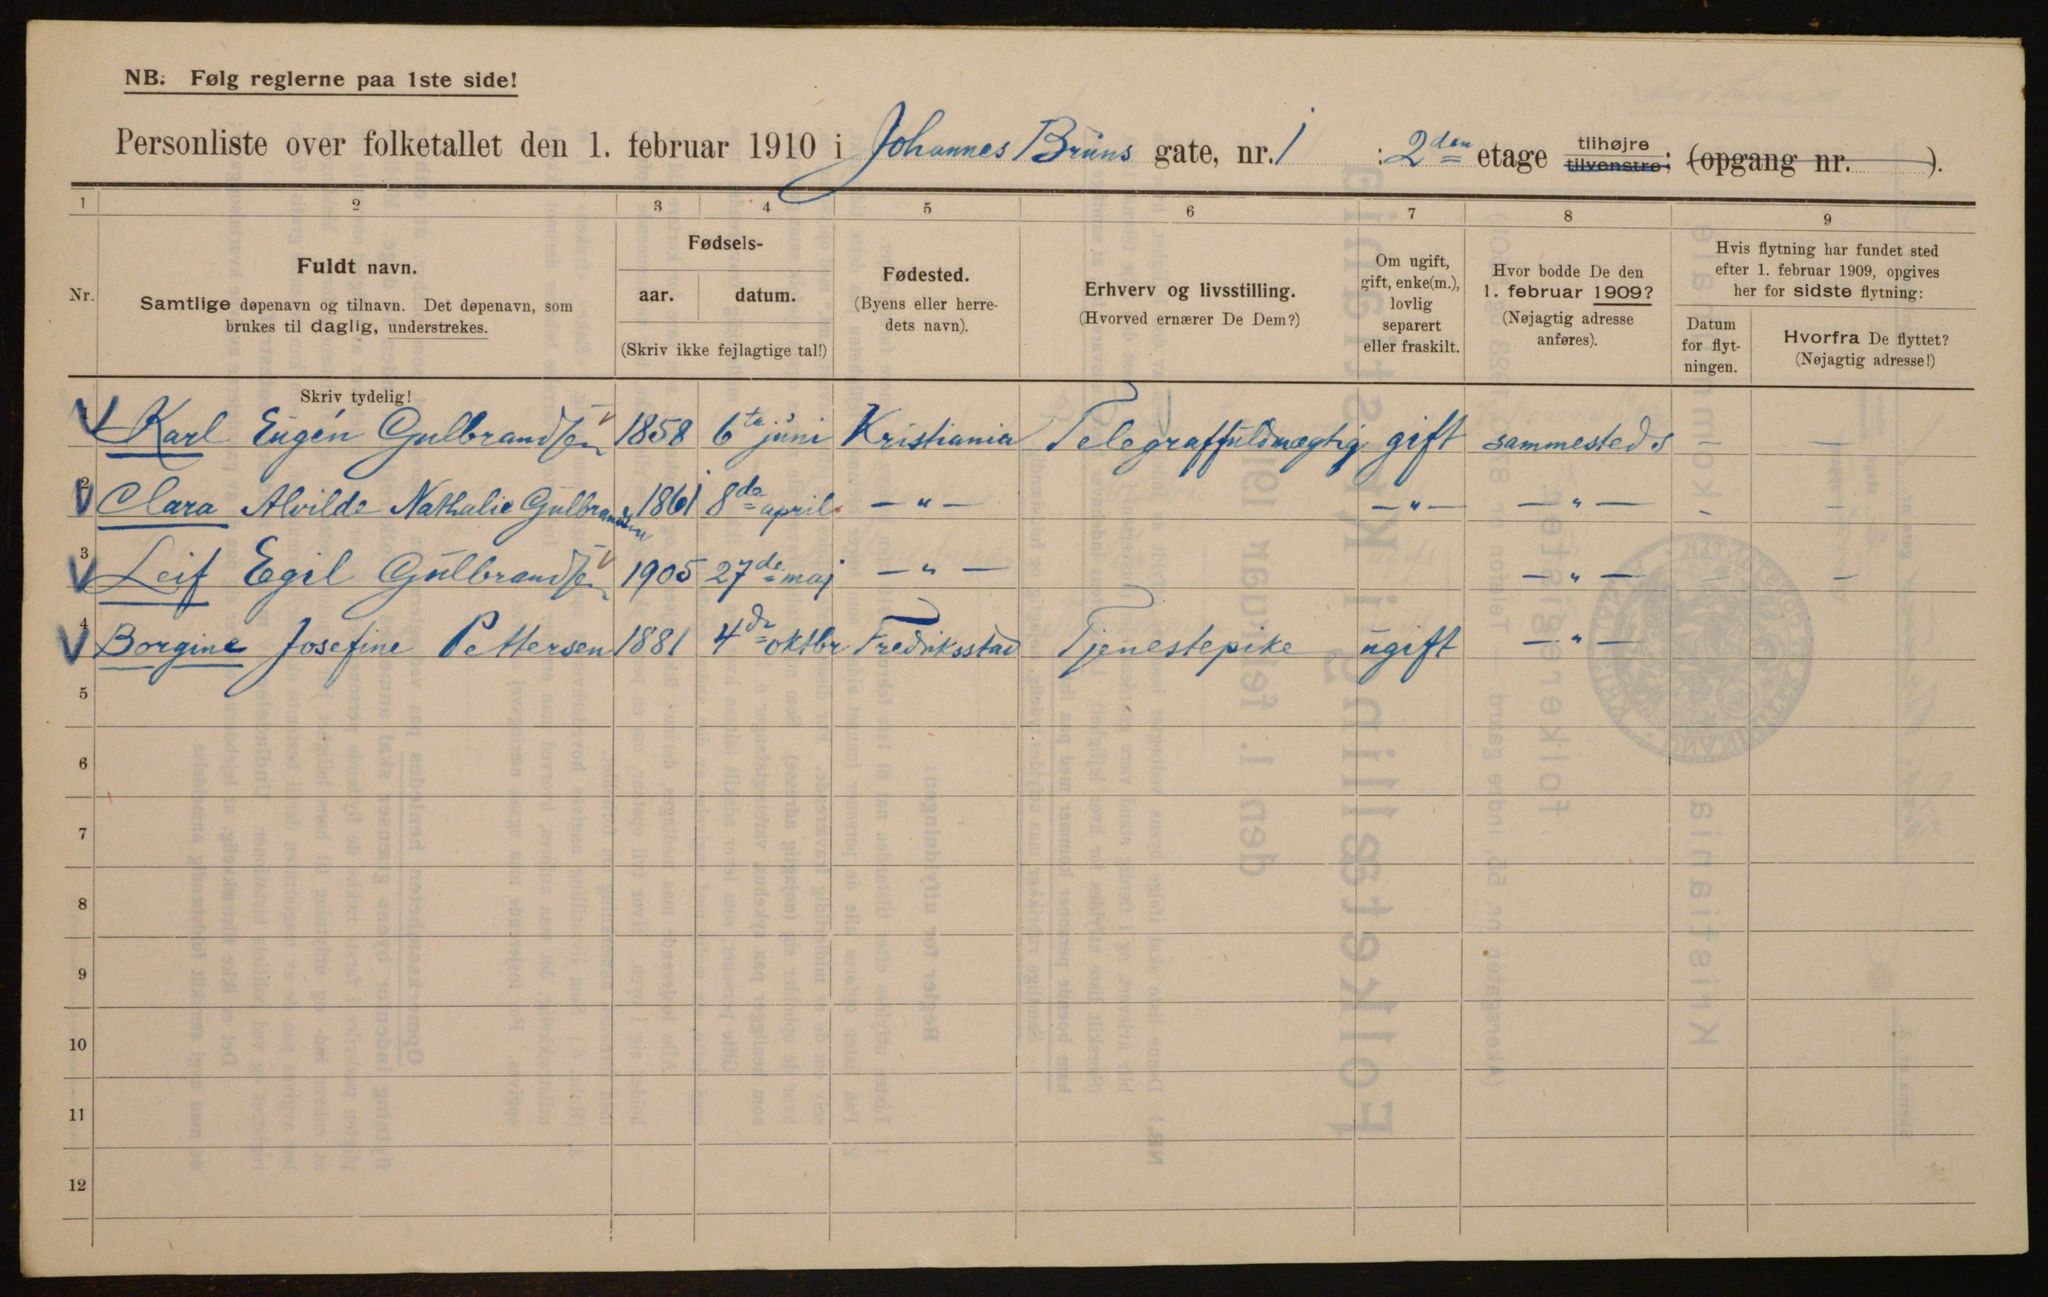 NB. Følg reglerne paa 1ste side!
Personliste over folketallet den 1. februar 1910 i Johannes Bruns gate, nr. 1 : 2den etage tilhøjre tilvenstre; (opgang nr. ).
1 2 3 4 5 6 7 8 9
Nr.
Fuldt navn.
Samtlige døpenavn og tilnavn. Det døpenavn, som
brukes til daglig, understrekes.
Skriv tydelig!
Fødsels-
aar. datum.
(Skriv ikke fejlagtige tal!)
Fødested.
(Byens eller herre-
dets navn).
Erhverv og livsstilling.
(Hvorved ernærer De Dem?)
Om ugift,
gift, enke(m.),
lovlig
separert
eller fraskilt.
Hvor bodde De den
1. februar 1909?
(Nøjagtig adresse
anføres).
Hvis flytning har fundet sted
efter 1. februar 1909, opgives
her for sidste flytning:
Datum
for flyt-
ningen.
Hvorfra De flyttet?
(Nøjagtig adresse!)
1 Karl Eugén Gulbrandsen 1858 6te juni Kristiania Telegraffuldmægtig gift sammesteds – –
2 Clara Alvilde Nathalie Gulbrandsen 1861 8de april — " — — " — — " — – –
3 Leif Egil Gulbrandsen 1905 27de maj — " — — " — – –
4 Borgine Josefine Pettersen 1881 4de oktbr Fredriksstad Tjenestepike ugift — " —
5
6
7
8
9
10
11
12